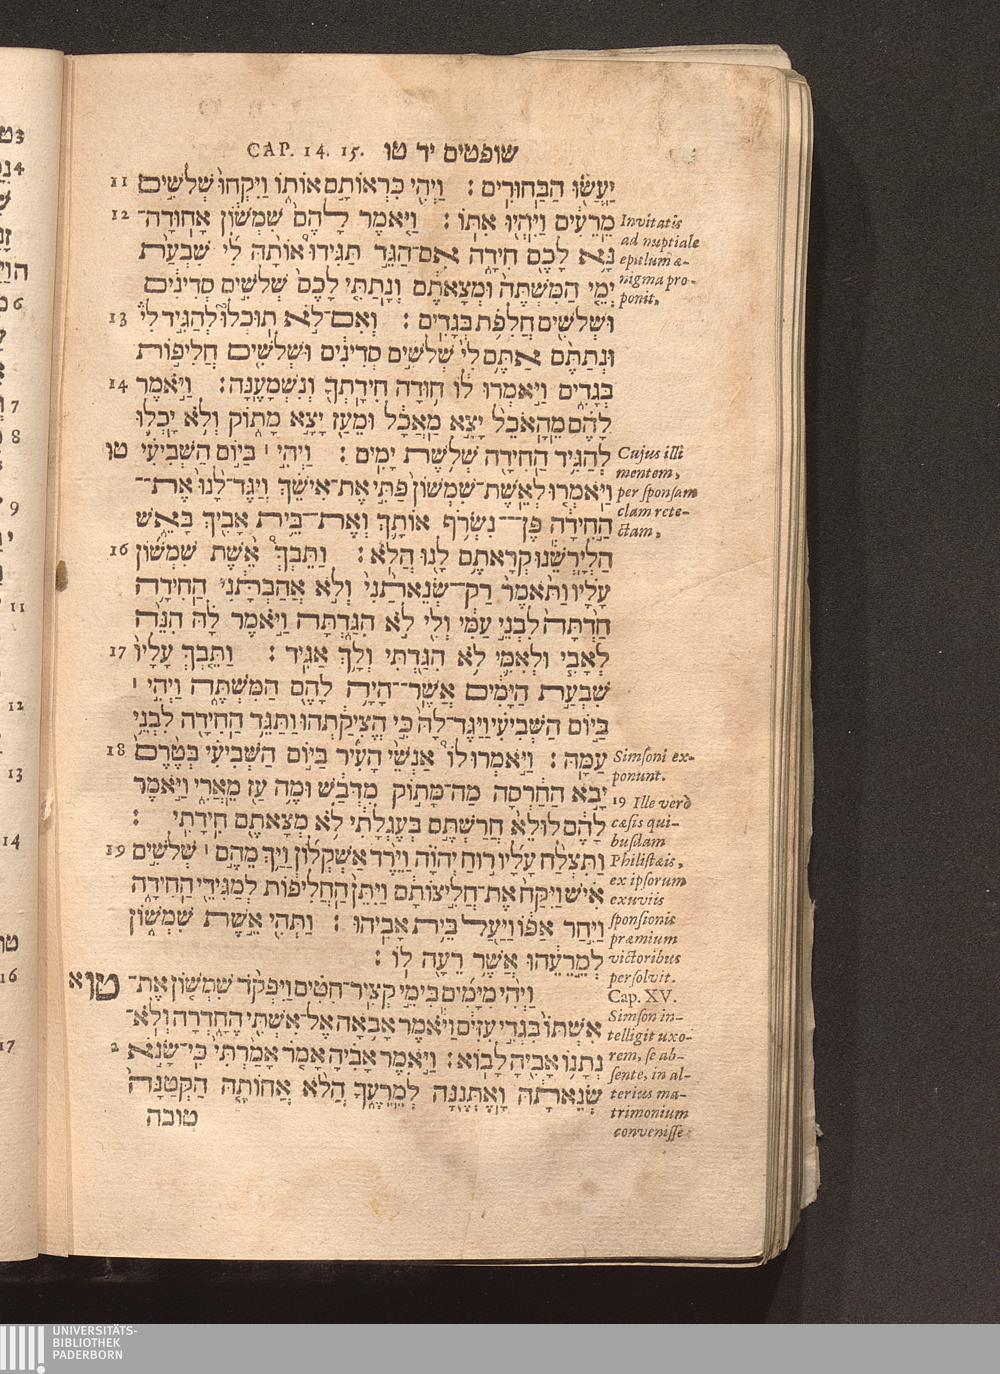 CAP. 14. 15. שופטים יד טו
יַעֲשׂוּ הַבַּחוּרִים : וַיְהִי כִּרְאוֹתָם אוֹתוֹ וַיִּקְחוּ שְׁלֹשִׁים 11
מֵרֵעִים וַיִּהְיוּ אִתּוֹ : וַיֹּאמֶר לָהֶם שִׁמְשׁוֹן אָחוּדָה־ 12
נָּא לָכֶם חִידָה אִם־הַגֵּד תַּגִּידוּ אוֹתָהּ לִי שִׁבְעַת
יְמֵי הַמִּשְׁתֶּה וּמְצָאתֶם וְנָתַתִּי לָכֶם שְׁלֹשִׁים סְדִינִים
וּשְׁלֹשִׁים חֲלִפֹת בְּגָדִים : וְאִם־לֹא תוּכְלוּ לְהַגִּיד לִי 13
וּנְתַתֶּם אַתֶּם לִי שְׁלֹשִׁים סְדִינִים וּשְׁלֹשִׁים חֲלִיפוֹת
בְּגָדִים וַיֹּאמְרוּ לוֹ חוּדָה חִידָתְךָ וְנִשְׁמָעֶנָּה : וַיֹּאמֶר 14
לָהֶם מֵהָאֹכֵל יָצָא מַאֲכָל וּמֵעַז יָצָא מָתוֹק וְלֹא יָכְלוּ
לְהַגִּיד הַחִידָה שְׁלֹשֶׁת יָמִים : וַיְהִי ׀ בַּיּוֹם הַשְּׁבִיעִי טו
וַיֹּאמְרוּ לְאֵשֶׁת־שִׁמְשׁוֹן פַּתִּי אֶת־אִישֵׁךְ וְיַגֶּד־לָנוּ אֶת־
הַחִידָה פֶּן־נִשְׂרֹף אוֹתָךְ וְאֶת־בֵּית אָבִיךְ בָּאֵשׁ
הַלְיָרְשֵׁנוּ קְרָאתֶם לָנוּ הֲלֹא : וַתֵּבְךְּ אֵשֶׁת שִׁמְשׁוֹן 16
עָלָיו וַתֹּאמֶר רַק־שְׂנֵאתַנִי וְלֹא אֲהַבְתָּנִי הַחִידָה
חַדְתָּה לִבְנֵי עַמִּי וְלִי לֹא הִגַּדְתָּה וַיֹּאמֶר לָהּ הִנֵּה
לְאָבִי וּלְאִמִּי לֹא הִגַּדְתִּי וְלָךְ אַגִּיד : וַתֵּבְךְּ עָלָיו 17
שִׁבְעַת הַיָּמִים אֲשֶׁר־הָיָה לָהֶם הַמִּשְׁתֶּה וַיְהִי ׀
בַּיּוֹם הַשְּׁבִיעִי וַיַּגֶּד־לָהּ כִּי הֱצִיקַתְהוּ וַתַּגֵּד הַחִידָה לִבְנֵי
עַמָּהּ : וַיֹּאמְרוּ לוֹ אַנְשֵׁי הָעִיר בַּיּוֹם הַשְּׁבִיעִי בְּטֶרֶם 18
יָבֹא הַחַרְסָה מַה־מָּתוֹק מִדְּבַשׁ וּמֶה עַז מֵאֲרִי וַיֹּאמֶר
לָהֶם לוּלֵא חֲרַשְׁתֶּם בְּעֶגְלָתִי לֹא מְצָאתֶם חִידָתִי :
וַתִּצְלַח עָלָיו רוּחַ יְהוָה וַיֵּרֶד אַשְׁקְלוֹן וַיַּךְ מֵהֶם ׀ שְׁלֹשִׁים 19
אִישׁ וַיִּקַּח אֶת־חֲלִיצוֹתָם וַיִּתֵּן הַחֲלִיפוֹת לְמַגִּידֵי הַחִידָה
וַיִּחַר אַפּוֹ וַיַּעַל בֵּית אָבִיהוּ : וַתְּהִי אֵשֶׁת שִׁמְשׁוֹן
לְמֵרֵעֵהוּ אֲשֶׁר רֵעָה לוֹ :
וַיְהִי מִיָּמִים בִּימֵי קְצִיר־חִטִּים וַיִּפְקֹד שִׁמְשׁוֹן אֶת־ טו א
אִשְׁתּוֹ בִּגְדִי עִזִּים וַיֹּאמֶר אָבֹאָה אֶל־אִשְׁתִּי הֶחָדְרָה וְלֹא־
נְתָנוֹ אָבִיהָ לָבוֹא : וַיֹּאמֶר אָבִיהָ אָמֹר אָמַרְתִּי כִּי־שָׂנֹא 2
שְׂנֵאתָהּ וָאֶתְּנֶנָּה לְמֵרֵעֶךָ הֲלֹא אֲחוֹתָהּ הַקְּטַנָּה
טוֹבָה
Invitatis
ad nuptiale
epulum æ-
nigma pro-
ponit,
Cujus illi
mentem,
per sponsam
clam rete-
ctam,
Simsoni ex-
ponunt.
19 Ille verò
cæsis qui-
busdam
Philistæis,
ex ipsorum
exuviis
sponsionis
præmium
victoribus
persolvit.
Cap. XV.
Simson in-
telligit uxo-
rem, se ab-
sente, in al-
terius ma-
trimonium
convenisse
3
4
6
7
8
9
11
12
13
14
טו
16
17
UNIVERSITÄTS-
BIBLIOTHEK
PADERBORN